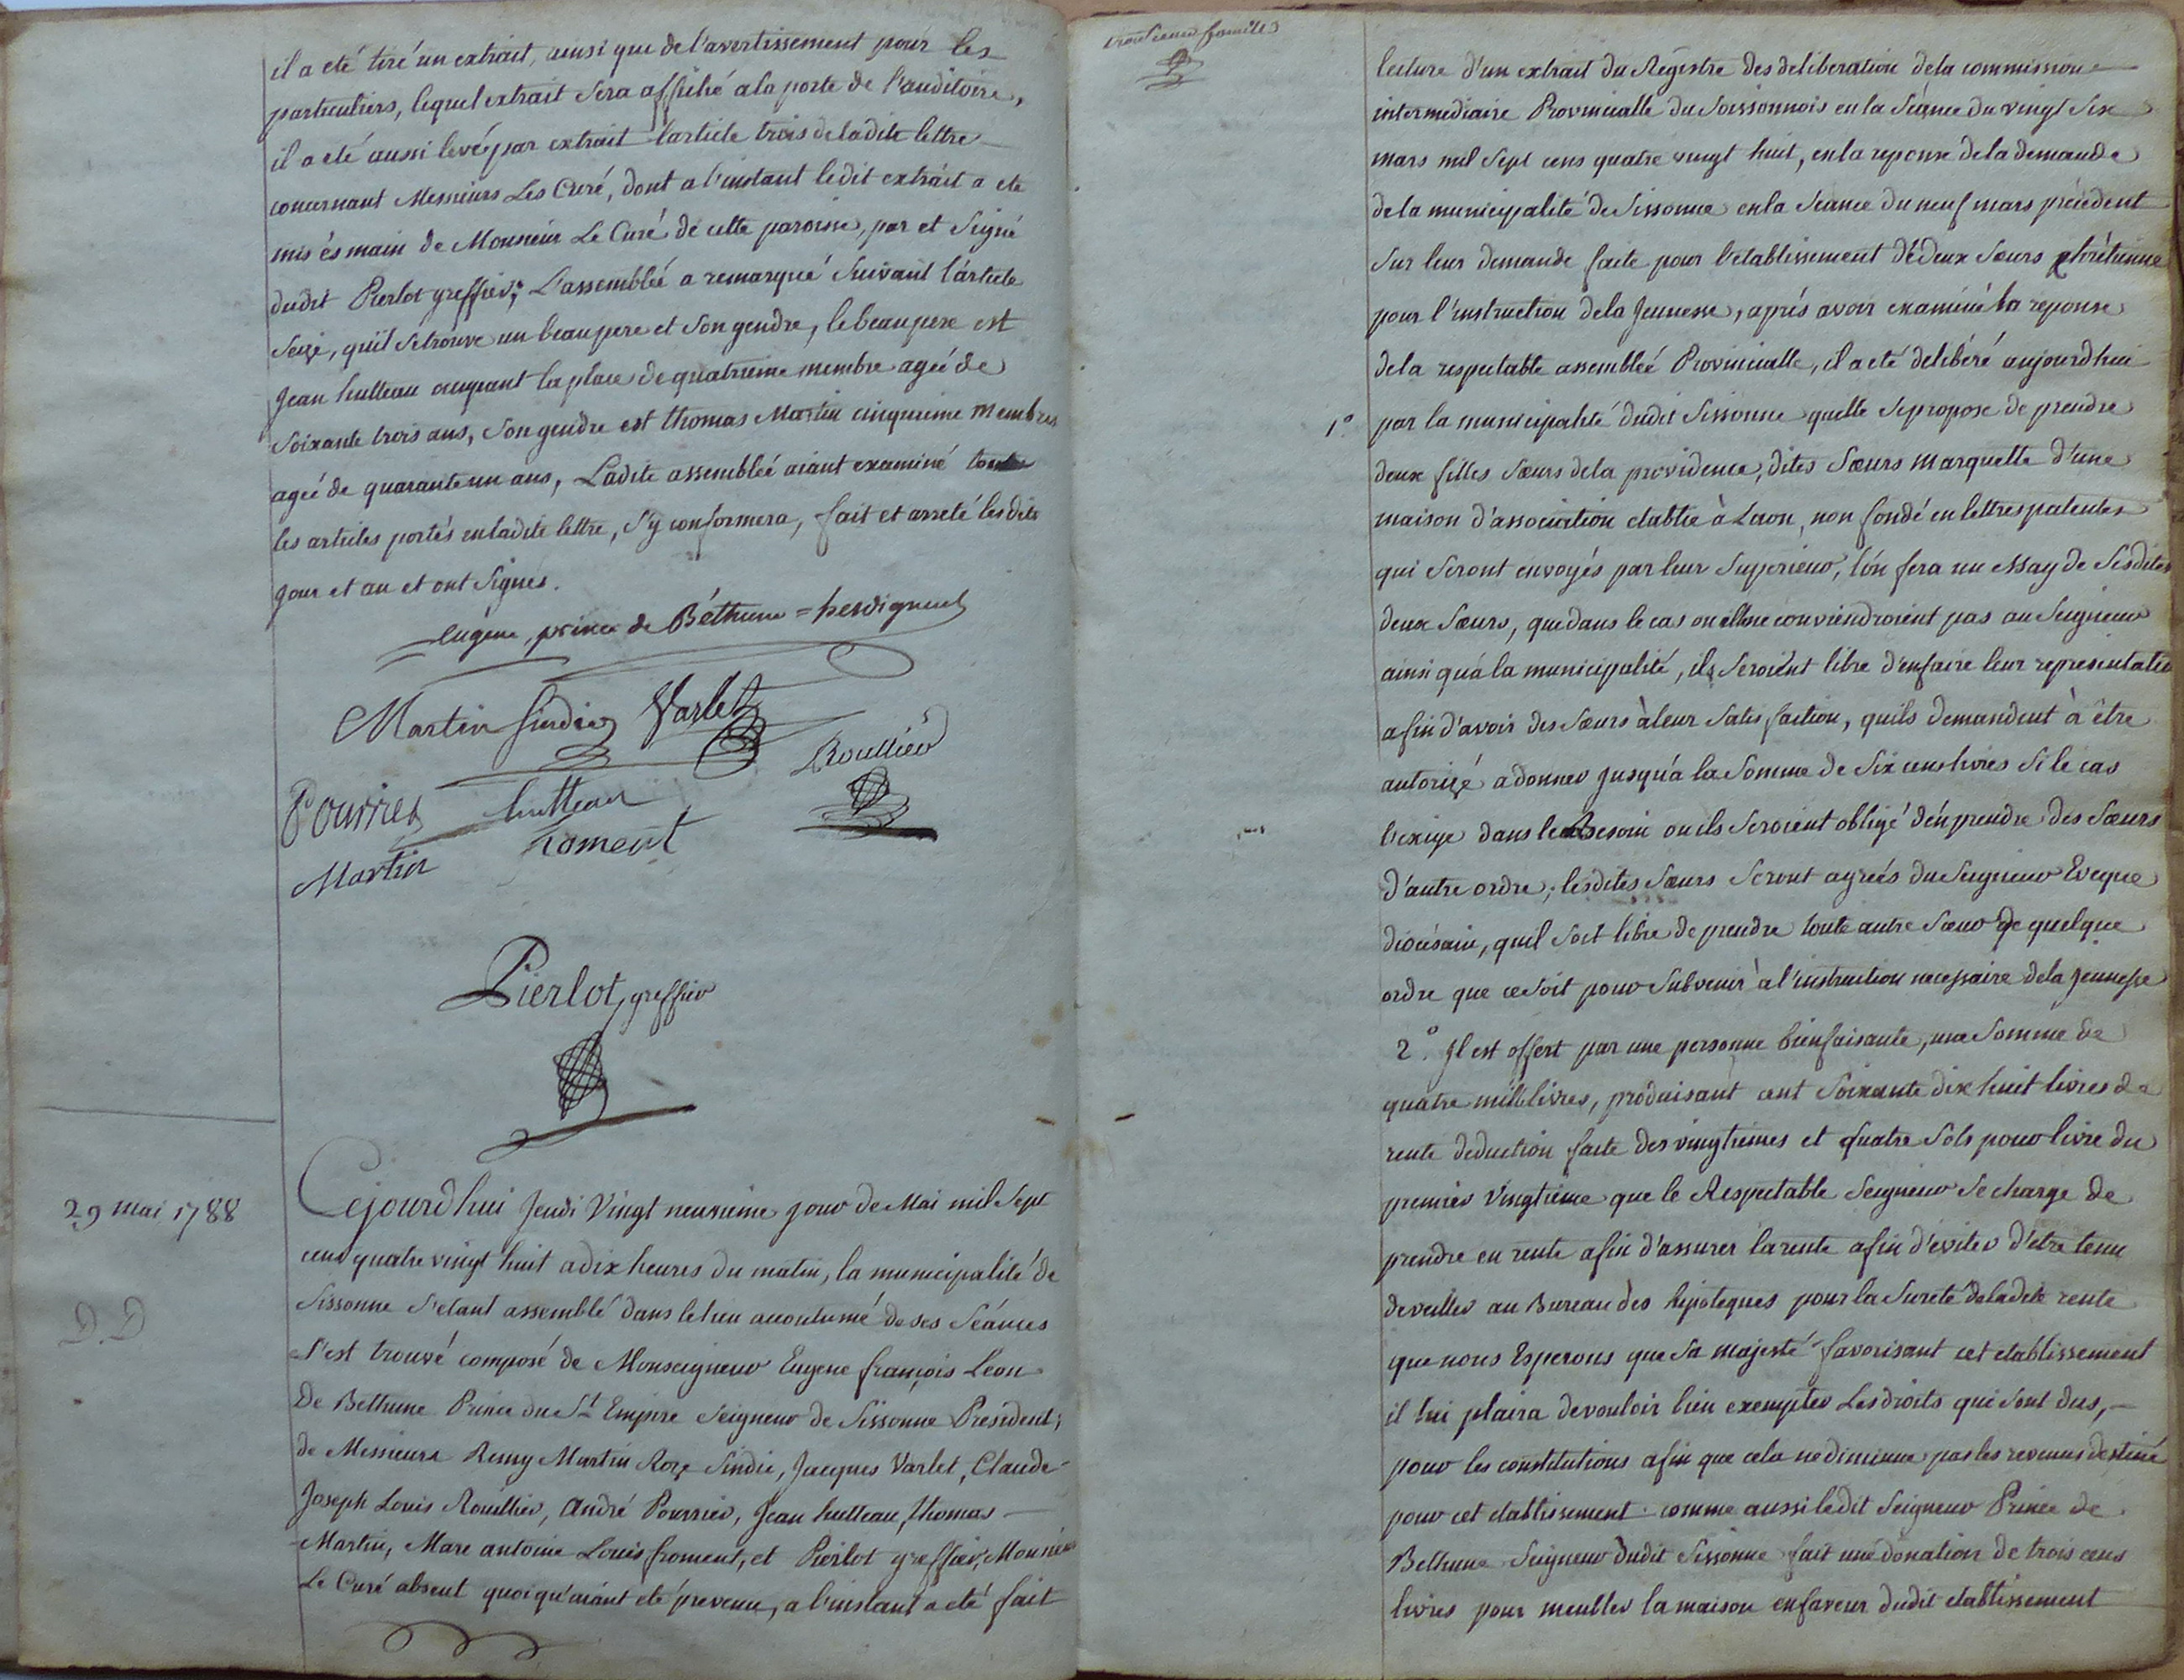 il a eté tiré un extrait, ainsi que de l'avertissement pour les
particuliers, lequel extrait sera affiché a la porte de l'auditoire,
il a eté aussi levé par extrait l'article trois de ladite lettre
concernant Messieurs Les Curé, dont a l'instant ledit extrait a eté
mis és main de Monsieur Le Curé de cette paroisse, par et signé
dudit Pierlot greffier; L'assembleé a remarqué suivant l'article
seize, qu'il se trouve un beau pere et son gendre, le beau pere est
Jean hutteau occupant la place de quatrieme membre agé de
soixante trois ans, son gendre est thomas Martin cinquieme membres
agé de quarante un ans, Ladite assembleé aiant examiné tout
les articles portés en ladite lettre, s'y conformera, fait et arreté lesdits
jour et an et ont signés.
Eugéne, prince de Béthune = hesdigneul
Martin sindic Varlet
Rouillier
Pourrier hutteau
Martin froment
Pierlot, greffier
29 mai 1788
Cejourd'hui Jeudi Vingt neuvieme jour de Mai mil sept
cens quatre vingt huit a dix heures du matin, la municipalité de
Sissonne s'etant assemblé dans le lieu accoutumé de ses séances
D.D
s'est trouvé composé de Monseigneur Eugene françois Léon
De Bethune Prince du St Empire Seigneur de Sissonne Président;
de Messieurs Remy Martin Roze Sindic, Jacques Varlet, Claude
Joseph Louis Rouillier, André Pourrier, Jean hutteau, thomas
Martin, Marc antoine Louis froment, et Pierlot greffier, Monsieur
Le Curé absent quoiqu'aiant eté prevenu, a l'instant a eté fait
troisieme feuille
lecture d'un extrait du Régistre des deliberation de la commission
intermediaire Provincialle du Soissonnois en la Séance du vingt six
mars mil sept cens quatre vingt huit, en la reponse de la demande
de la municipalité de Sissonne en la séance du neuf mars précédent
sur leur demande faite pour l'etablissement de deux sœurs chrétienne
pour l'instruction de la Jeunesse, aprés avoir examiné la reponse
de la respectable assembleé Provincialle, il a eté deliberé aujourdhui
1°. par la municipalité dudit Sissonne quelle se propose de prendre
deux filles sœurs de la providence, dites sœurs marquette d'une
maison d'association etablie à Laon, non fondé en lettres patentes
qui seront envoyés par leur superieur, l'on fera un essay de sesdites
deux sœurs, que dans le cas ou elle ne conviendroient pas au Seigneur
ainsi qu'á la municipalité, ils seroient libre d'en faire leur representatio
afin d'avoir des sœurs à leur satisfaction, quils demandent à être
autorizé a donner jusqu'a la somme de six cens livres si le cas
l'exige dans le besoin ou ils seroient obligé d'en prendre des sœurs
d'autre ordre; lesdites sœurs seront agreés du Seigneur Eveque
diocésain, quil soit libre de prendre toute autre sœur de quelque
ordre que ce soit pour subvenir a l'instruction necessaire de la Jeunesse
2°. Il est offert par une personne bienfaisante, une somme de
quatre mille livres, produisant cent soixante dix huit livres de
rente deduction faite des vingtiemes et quatre sols pour livre du
premier vingtieme que le Respectable Seigneur se charge de
prendre en rente afin d'assurer la rente afin d'éviter d'etre tenu
de veiller au Bureau des hipoteques pour la sureté de ladite rente
que nous Esperons que sa majesté favorisant cet etablissement
il lui plaira de vouloir bien exempter les droits qui sont dus,
pour les constitutions afin que cela ne diminue pas les revenus destiné
pour cet etablissement. comme aussi ledit Seigneur Prince de
Bethune Seigneur dudit Sissonne fait une donation de trois cens
livres pour meubler la maison en faveur dudit etablissement